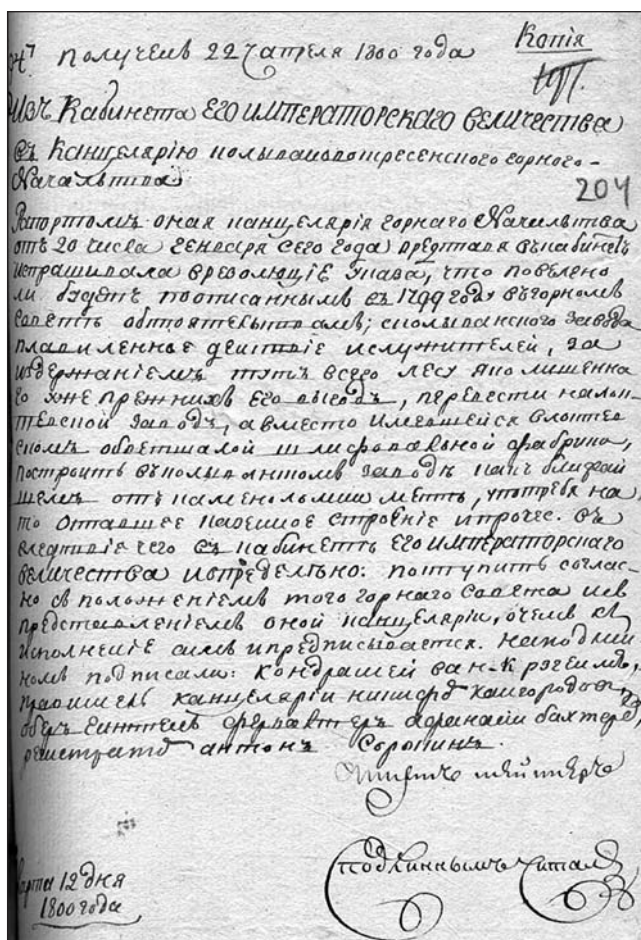 Копія
получен 22 апреля 1800 года
Изъ Кабинета ЕГО ИМПЕРАТОРСКАГО ВЕЛИЧЕСТВА
въ Канцелярію Колывановоскресенского горного
Начальства
204
Рапортомъ оная канцелярія горнаго Начальства
отъ 20 числа Генваря сего года представя въ кабинетъ
испрашивала въ резолюціе Указа, что повелено
ли будетъ прописаннымъ въ 1799 году въ горномъ
Советъ обстоятельствамъ; с колыванского завода
плавиленное действіе и служителей, за
издержаніемъ тутъ всего лесу и по лишенна
го уже прежнихъ его выгодъ, перевести на лок
тевской заводъ, а вместо имеющейся в локтев
скомъ обветшалой шлифовальной фабрики,
построить въ колыванскомъ заводъ какъ ближай
шемъ отъ каменоломни местъ, употребя на
то оставшее казенное строеніе и прочее. въ
следствіе чего въ кабинетъ ЕГО ИМПЕРАТОРСКАГО
ВЕЛИЧЕСТВА и определено: поступить соглас-
но съ положеніемъ того горнаго Совета и съ
представленіемъ оной канцеляріи, о чемъ къ
исполненіе симъ и предписывается. на подлин
номъ подписали:
правитель канцеляріи
оберъ афанасіи
регистратъ антонъ Соропинъ.
Сподлиннымъ Читалъ
Марта 12 дня
1800 года